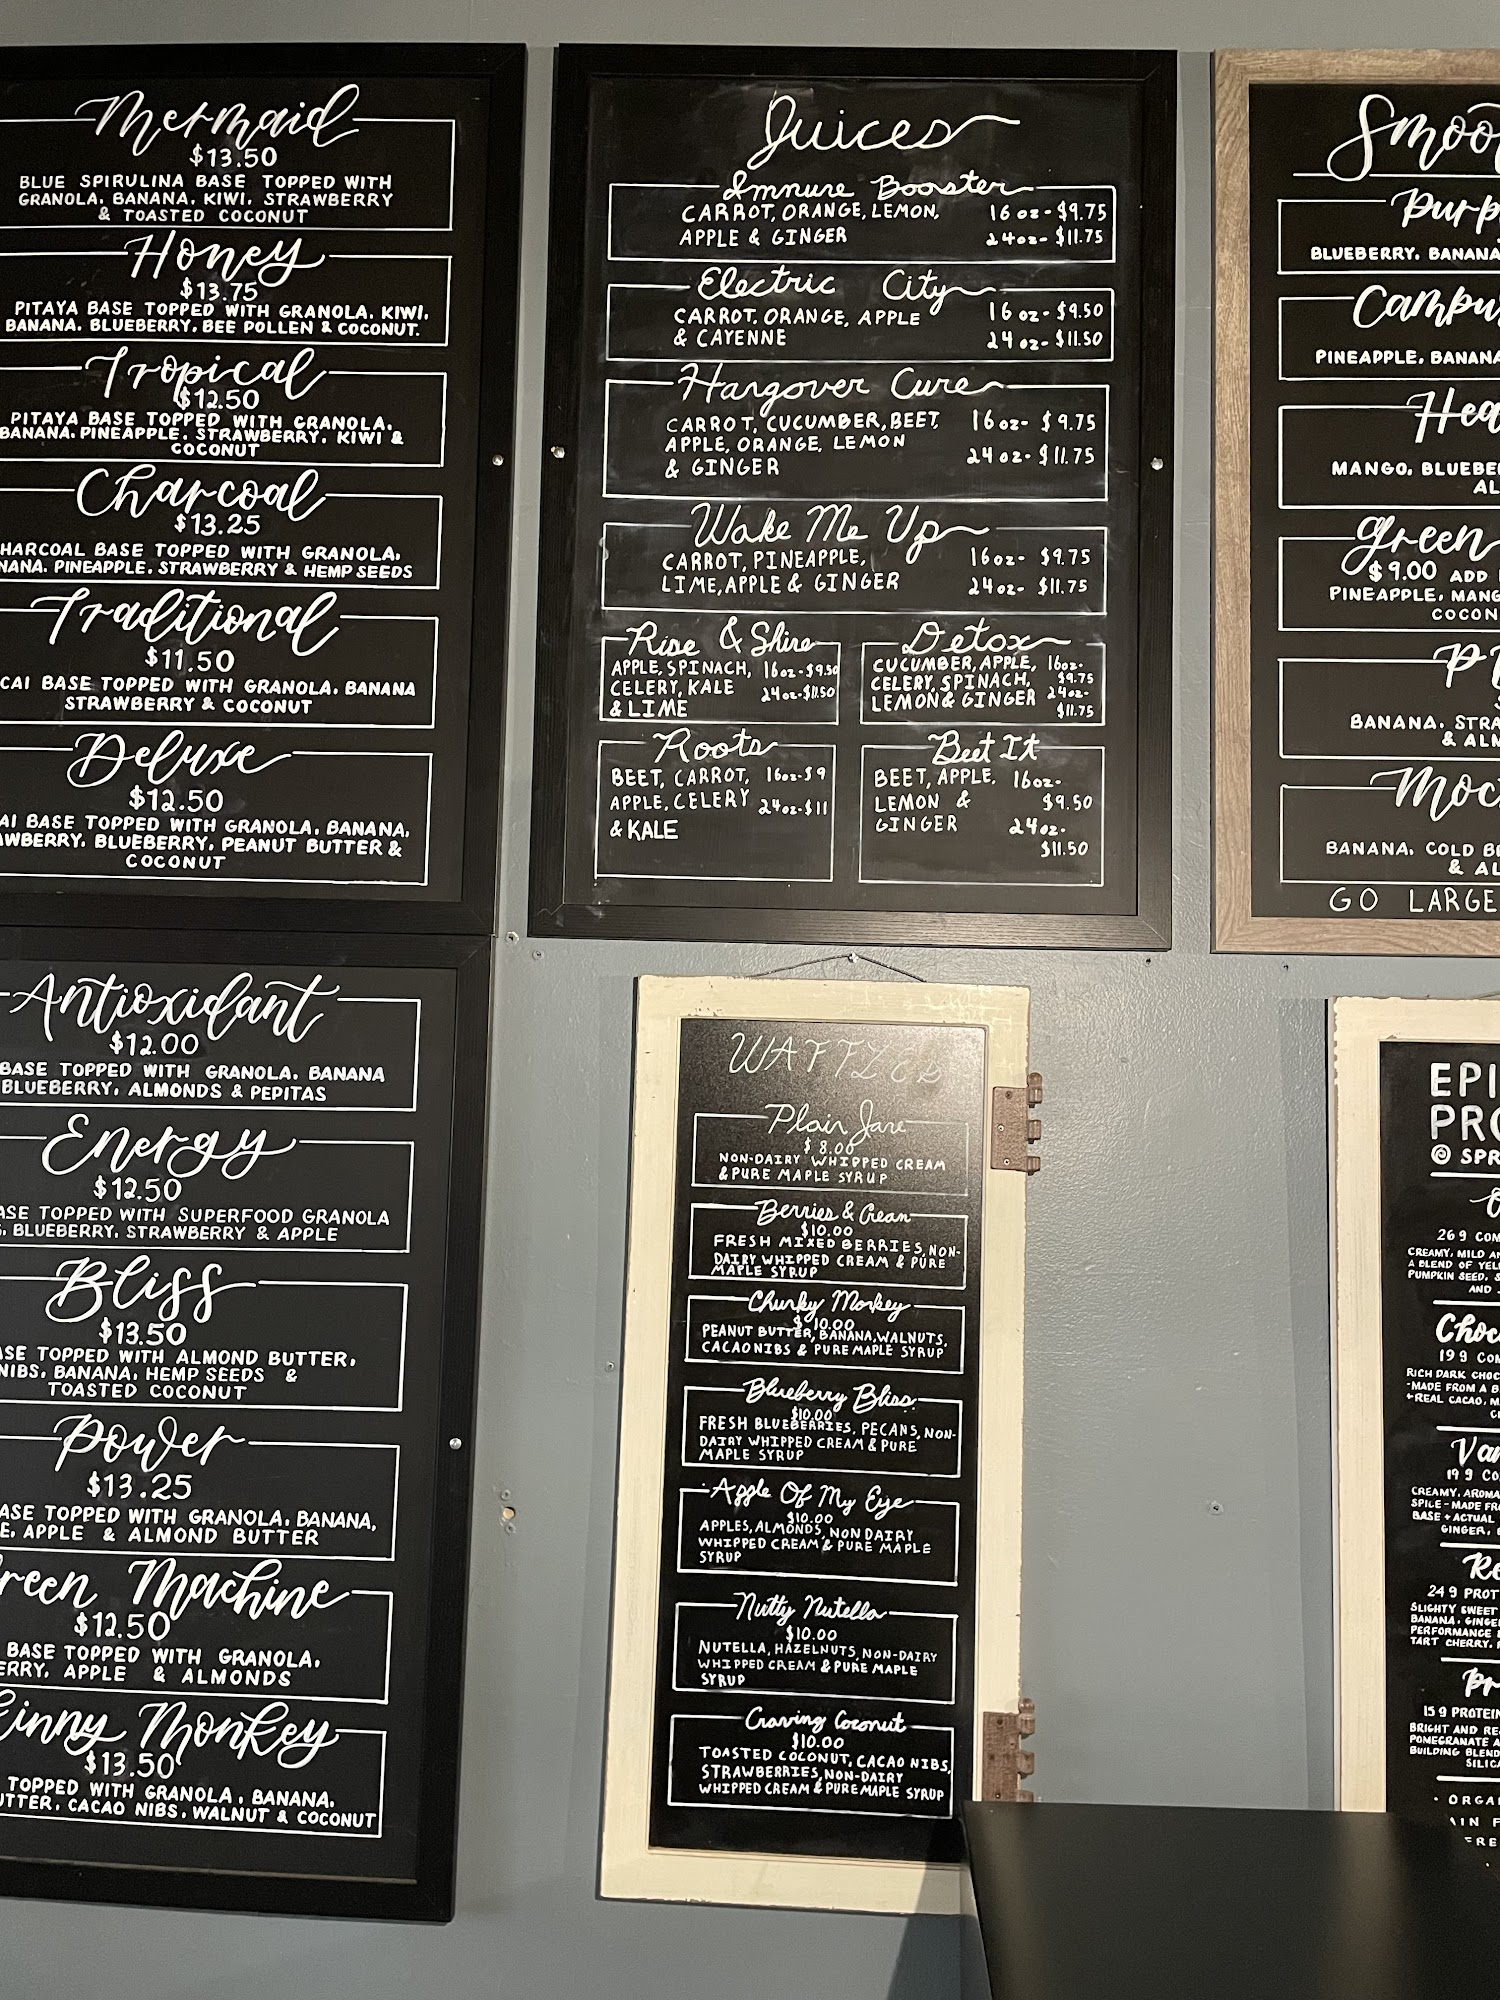 Mermaid
$13.50
BLUE SPIRULINA BASE TOPPED WITH
GRANOLA, BANANA, KIWI, STRAWBERRY
& TOASTED COCONUT
Honey
$13.75
PITAYA BASE TOPPED WITH GRANOLA, KIWI,
BANANA, BLUEBERRY, BEE POLLEN & COCONUT.
Tropical
$12.50
PITAYA BASE TOPPED WITH GRANOLA,
BANANA, PINEAPPLE, STRAWBERRY, KIWI &
COCONUT
Charcoal
$13.25
HARCOAL BASE TOPPED WITH GRANOLA,
NANA, PINEAPPLE, STRAWBERRY & HEMP SEEDS
Traditional
$11.50
CAI BASE TOPPED WITH GRANOLA, BANANA
STRAWBERRY & COCONUT
Deluxe
$12.50
AI BASE TOPPED WITH GRANOLA, BANANA,
AWBERRY, BLUEBERRY, PEANUT BUTTER &
COCONUT
Antioxidant
$12.00
BASE TOPPED WITH GRANOLA, BANANA
BLUEBERRY, ALMONDS & PEPITAS
Energy
$12.50
ASE TOPPED WITH SUPERFOOD GRANOLA
BLUEBERRY, STRAWBERRY & APPLE
Bliss
$13.50
ASE TOPPED WITH ALMOND BUTTER,
NIBS, BANANA, HEMP SEEDS &
TOASTED COCONUT
Power
$13.25
ASE TOPPED WITH GRANOLA, BANANA,
E, APPLE & ALMOND BUTTER
reen Machine
$12.50
BASE TOPPED WITH GRANOLA,
ERRY, APPLE & ALMONDS
inny Monkey
$13.50
TOPPED WITH GRANOLA, BANANA,
UTTER, CACAO NIBS, WALNUT & COCONUT
Juices
Immune Booster
CARROT, ORANGE, LEMON, 16 oz - $9.75
APPLE & GINGER 24oz- $11.75
Electric City
CARROT, ORANGE, APPLE 16 oz - $9.50
& CAYENNE 24 oz - $11.50
Hangover Cure
CARROT, CUCUMBER, BEET, 16oz- $9.75
APPLE, ORANGE, LEMON 24oz- $11.75
& GINGER
Wake Me Up
CARROT, PINEAPPLE, 16oz- $9.75
LIME, APPLE & GINGER 24oz- $11.75
Rise & Shine
APPLE, SPINACH, 16oz-$9.50
CELERY, KALE 24oz-$11.50
& LIME
Detox
CUCUMBER, APPLE, 16oz-
CELERY, SPINACH, $9.75
LEMON & GINGER 24oz-
$11.75
Roots
BEET, CARROT, 16oz-$9
APPLE, CELERY 24oz-$11
& KALE
Beet It
BEET, APPLE, 16oz-
LEMON & $9.50
GINGER 24oz-
$11.50
WAFFLES
Plain Jane
$8.00
NON-DAIRY WHIPPED CREAM
& PURE MAPLE SYRUP
Berries & Cream
$10.00
FRESH MIXED BERRIES, NON-
DAIRY WHIPPED CREAM & PURE
MAPLE SYRUP
Chunky Monkey
$10.00
PEANUT BUTTER, BANANA, WALNUTS,
CACAO NIBS & PURE MAPLE SYRUP
Blueberry Bliss
$10.00
FRESH BLUEBERRIES, PECANS, NON-
DAIRY WHIPPED CREAM & PURE
MAPLE SYRUP
Apple Of My Eye
$10.00
APPLES, ALMONDS, NON DAIRY
WHIPPED CREAM & PURE MAPLE
SYRUP
Nutty Nutella
$10.00
NUTELLA, HAZELNUTS, NON-DAIRY
WHIPPED CREAM & PURE MAPLE
SYRUP
Craving Coconut
$10.00
TOASTED COCONUT, CACAO NIBS,
STRAWBERRIES, NON-DAIRY
WHIPPED CREAM & PURE MAPLE SYRUP
Smoo
Purp
BLUEBERRY, BANANA
Campu
PINEAPPLE, BANANA
Hea
MANGO, BLUEBE
AL
Green
$9.00 ADD
PINEAPPLE, MANG
COCON
P
BANANA, STRA
& ALM
Moc
BANANA, COLD B
& AL
GO LARGE
EPI
PRO
@ SPR
26 g COM
CREAMY, MILD A
A BLEND OF YEL
PUMPKIN SEED, S
AND
Choc
19 g COM
RICH DARK CHOC
-MADE FROM A B
+REAL CACAO, M
Van
19 g CO
CREAMY, AROMA
SPICE - MADE FR
BASE + ACTUAL
GINGER,
Re
24 g PROT
SLIGHTY SWEET
BANANA, GINGE
PERFORMANCE
TART CHERRY,
Pr
15 g PROTEIN
BRIGHT AND RE
POMEGRANATE A
BUILDING BLEND
SILIC
· ORGA
AIN F
FRE